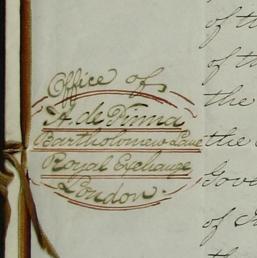 Office of
H. de Pinna
Bartholomew Lane
Royal Exchange
London.
of th
of th
the
the
Gove
of
the